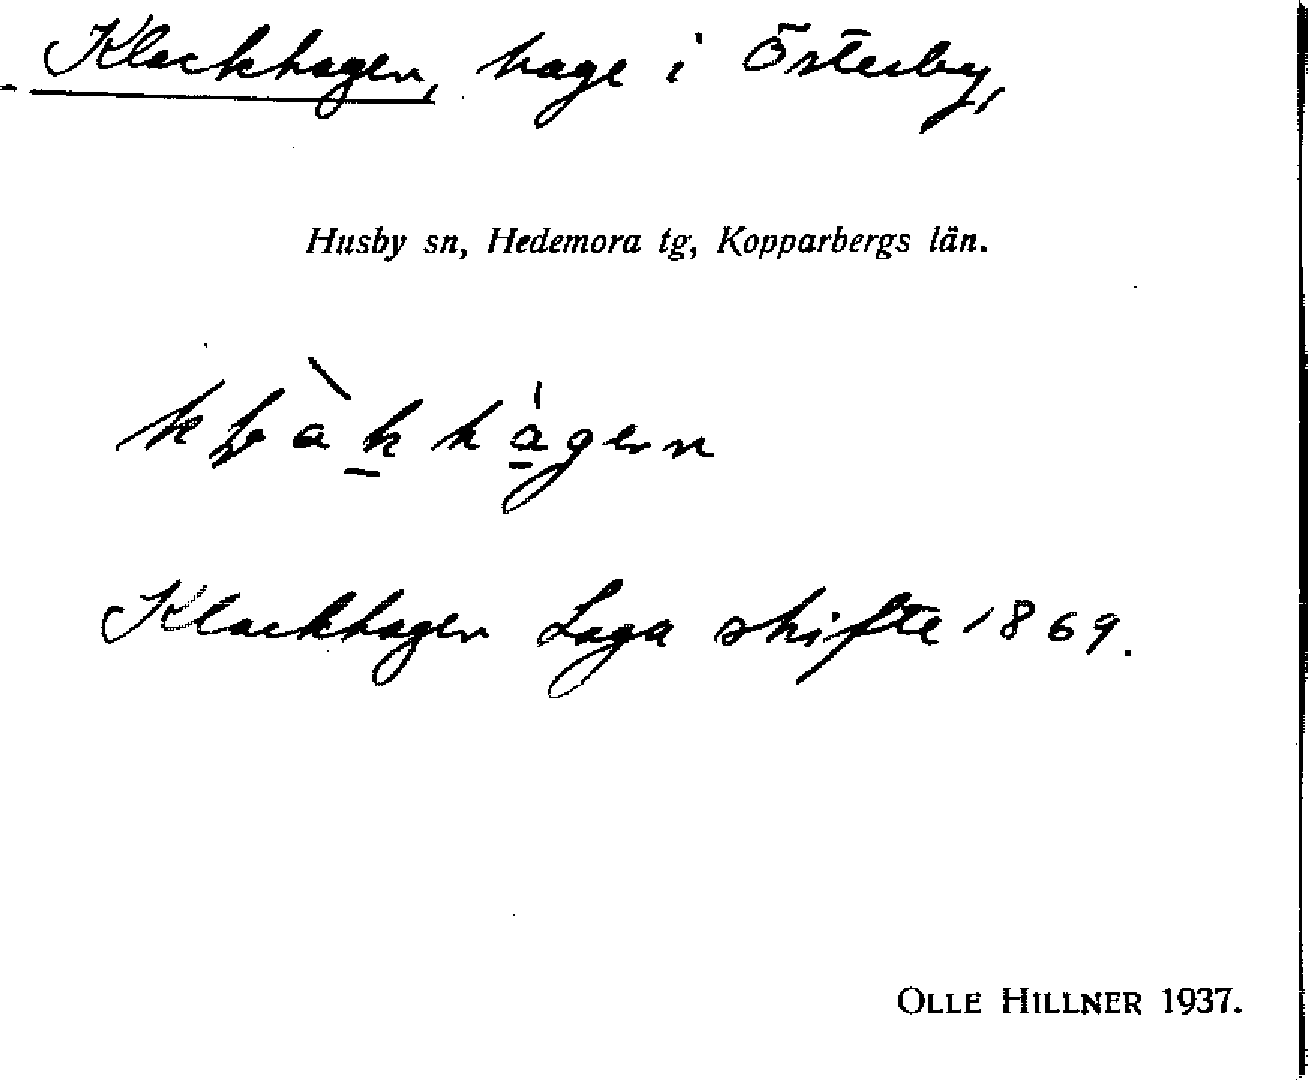 Klackhagen, hage i Österby,
Husby sn, Hedemora tg, Kopparbergs län.
Klackhagen Laga skifte 1869.
OLLE HILLNER 1937.